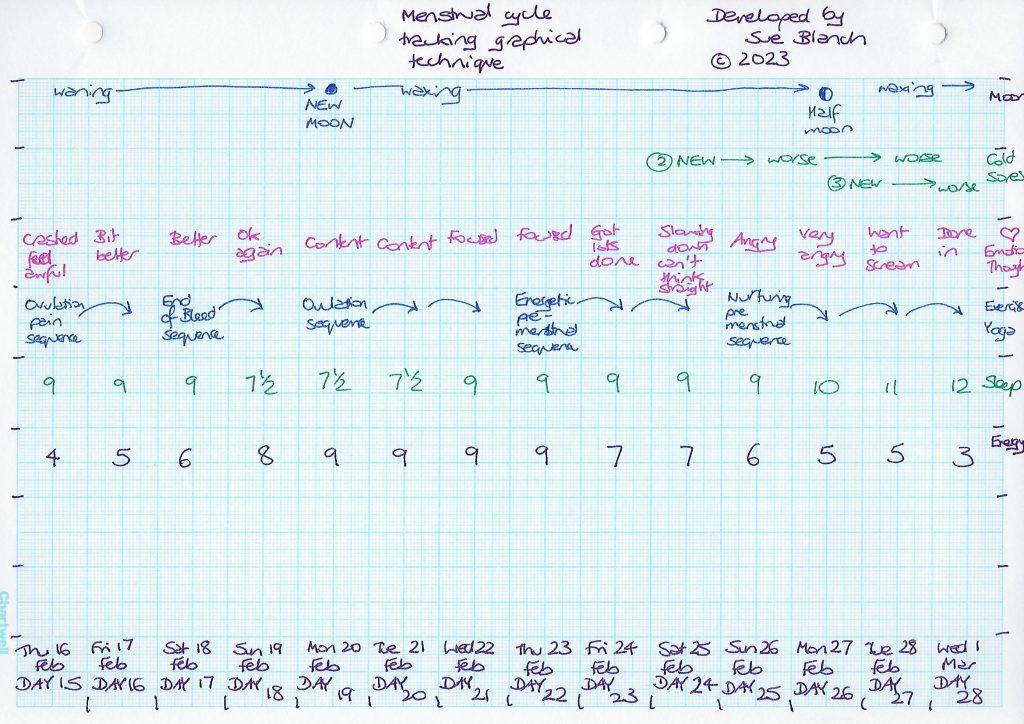 Menstrual cycle
tracking graphical
technique
Developed by
Sue Blanch
© 2023
waning
NEW
MOON
waxing
Half
moon
waxing
Moon
② NEW worse worse
③ NEW worse
Cold
Sores
Crashed
feel
awful
Bit
better
Better
Ok
again
Content
Content
Focused
Focused
Got
lots
done
Slowing
down
can't
think
straight
Angry
Very
angry
Want
to
Scream
Done
in
Emotio
Though
Ovulation
pain
sequence
End
of Bleed
sequence
Ovulation
sequence
Energetic
pre-
menstrual
sequence
Nurturing
pre
menstrual
sequence
Exercis
Yoga
9 9 9 7½ 7½ 7½ 9 9 9 9 9 10 11 12 Sleep
4 5 6 8 9 9 9 9 7 7 6 5 5 3 Energy
Thu 16
Feb
DAY 15
Fri 17
feb
DAY 16
Sat 18
feb
DAY 17
Sun 19
feb
DAY 18
Mon 20
Feb
DAY 19
Tue 21
feb
DAY 20
Wed 22
feb
DAY 21
Thu 23
feb
DAY 22
Fri 24
feb
DAY 23
Sat 25
feb
DAY 24
Sun 26
feb
DAY 25
Mon 27
feb
DAY 26
Tue 28
feb
DAY 27
Wed 1
Mar
DAY 28
Chartwell